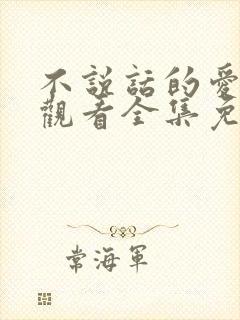 不説話的愛
觀看全集免
常海軍